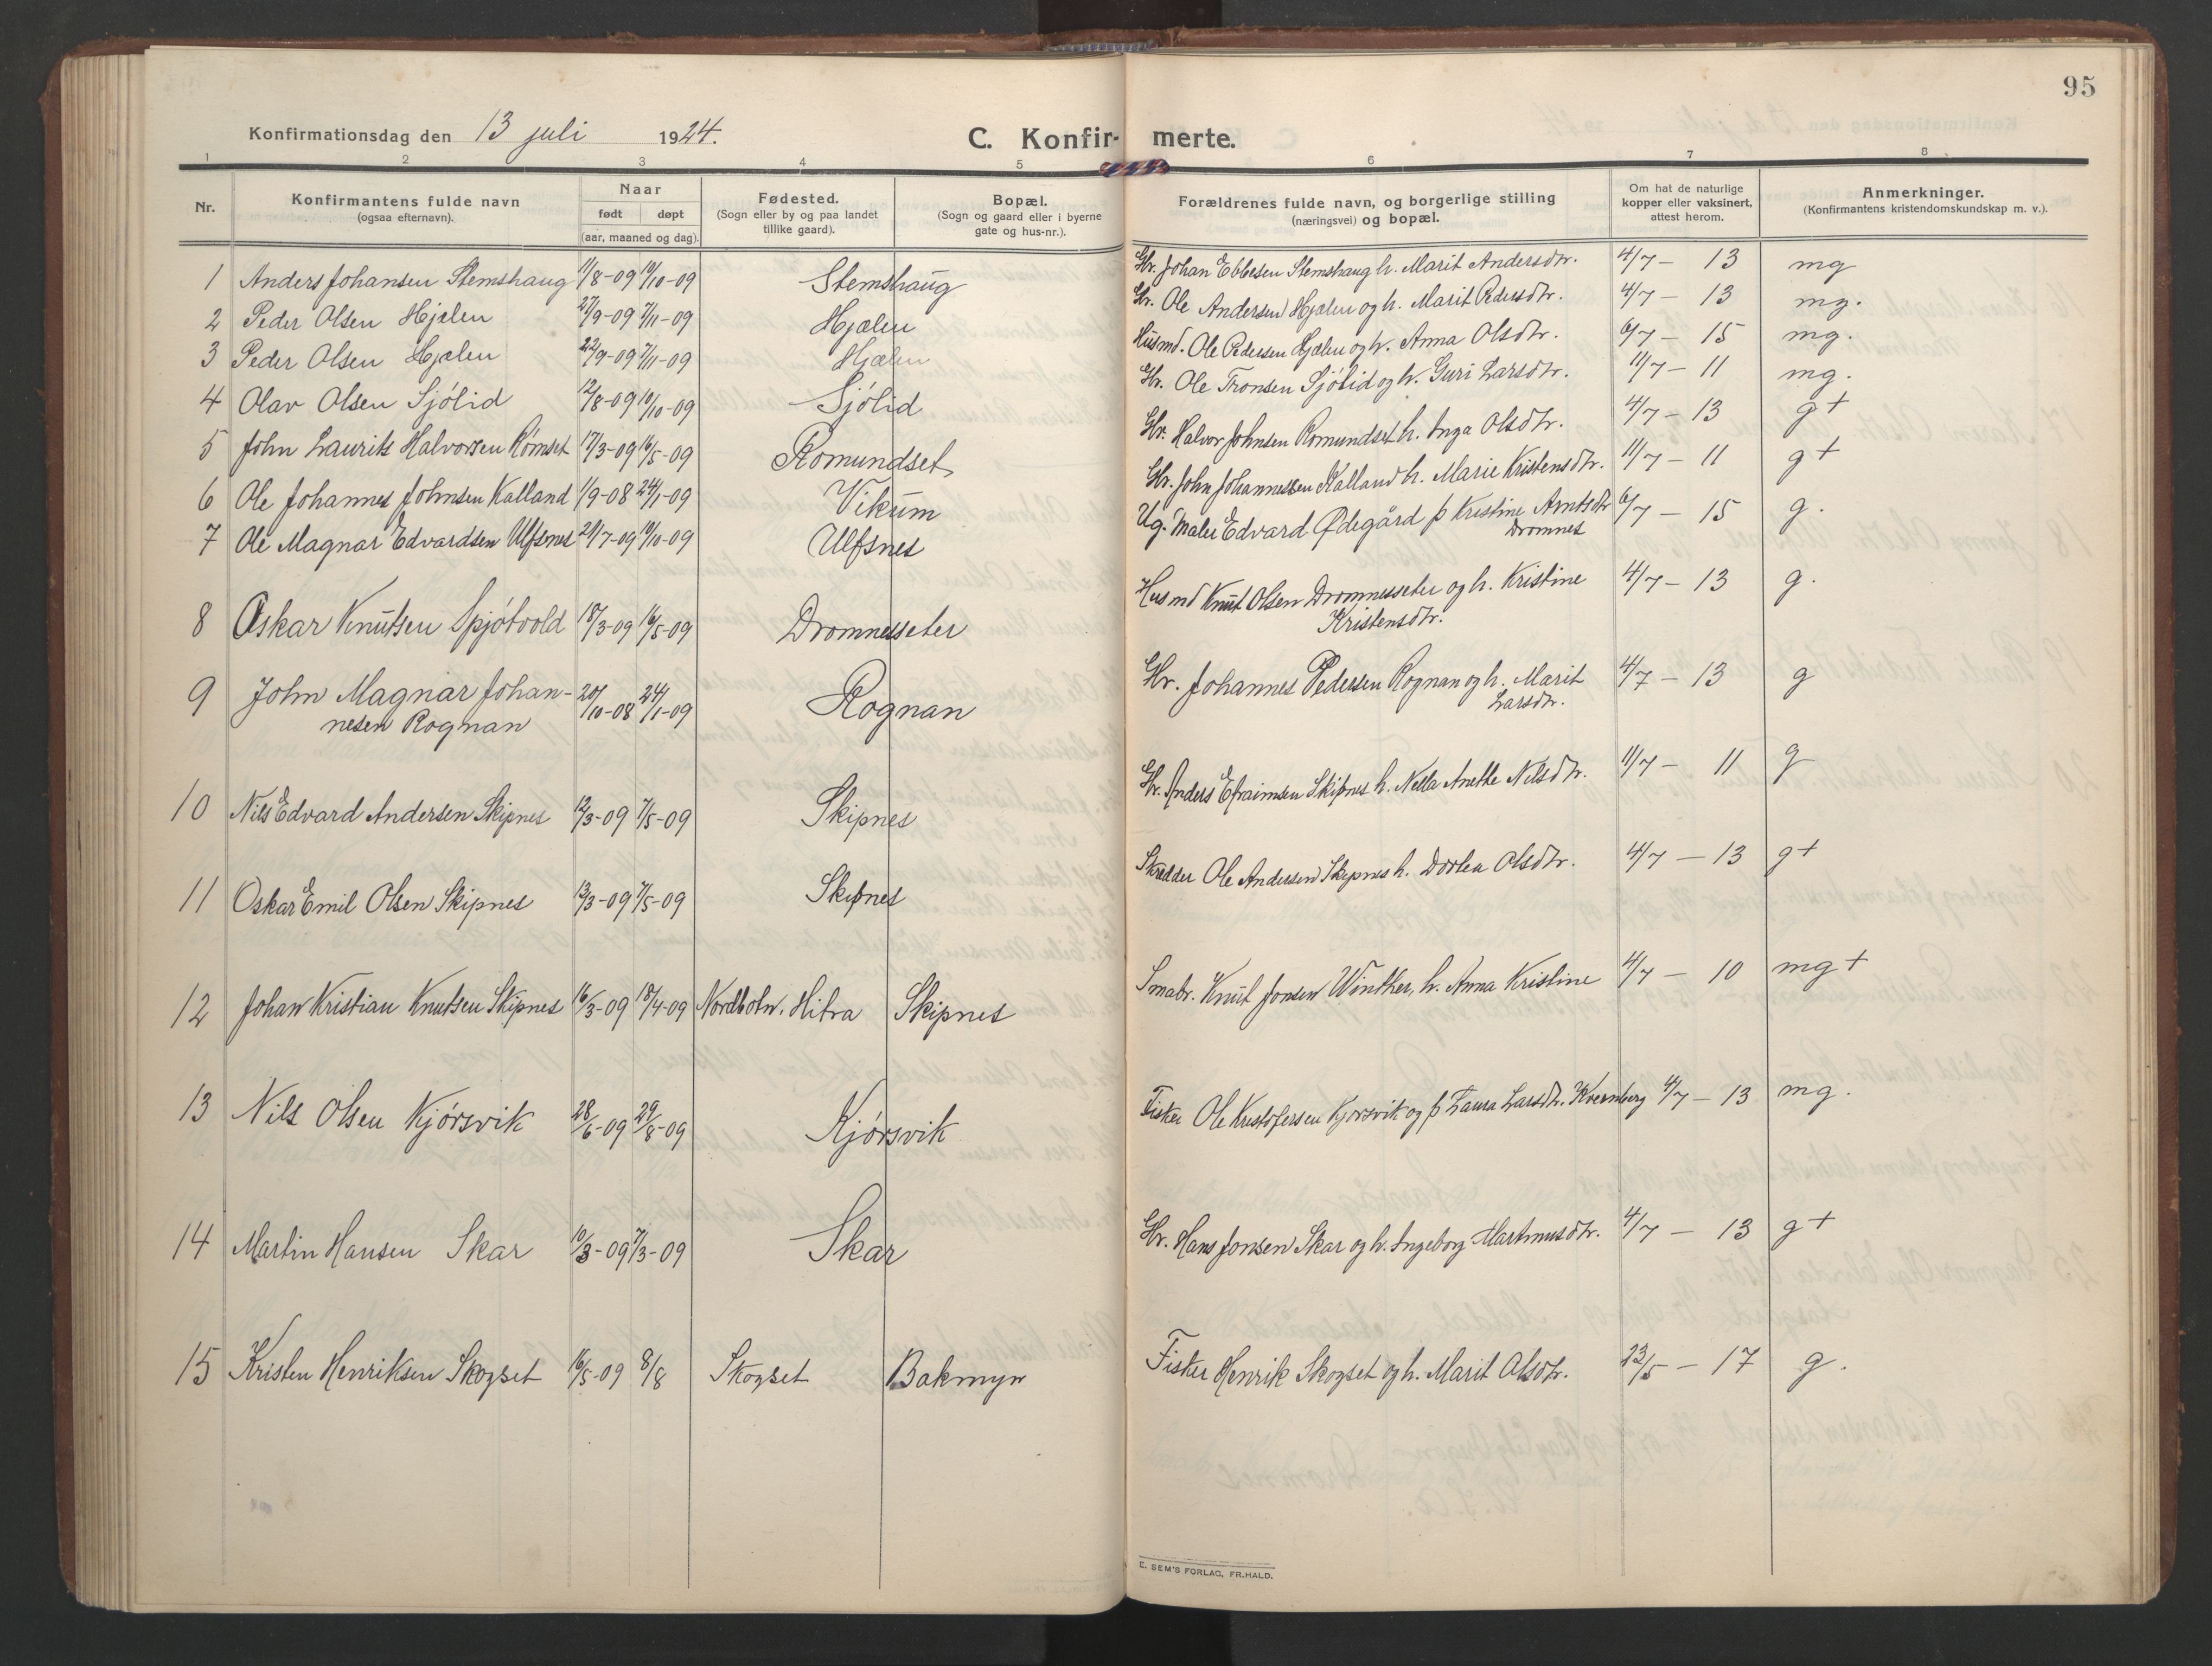 95
Konfirmationsdag den 13 juli 1924.
C. Konfir- merte.
1 2 3 4 5 6 7 8
Nr. Konfirmantens fulde navn (ogsaa efternavn). Naar født døpt (aar, maaned og dag). Fødested. (Sogn eller by og paa landet tillike gaard). Bopæl. (Sogn og gaard eller i byerne gate og hus-nr.). Forældrenes fulde navn, og borgerlige stilling (næringsvei) og bopæl. Om hat de naturlige kopper eller vaksinert, attest herom. Anmerkninger. (Konfirmantens kristendomskundskap m. v.).
1 Anders Johansen Stemshaug 11/8-09 10/10-09 Stemshaug Gbr. Johan Ebbesen Stemshaug h. Marit Andersdtr. 4/7 - 13 mg
2 Peder Olsen Hjælen 27/9-09 7/11-09 Hjælen Gbr. Ole Andersen Hjælen og h. Marit Pedersdtr. 4/7 - 13 mg.
3 Peder Olsen Hjælen 22/9-09 7/11-09 Hjælen Husmd. Ole Pedersen Hjælen og h. Anna Olsdtr. 6/7 - 15 mg.
4 Olav Olsen Sjólid 12/8-09 10/10-09 Sjólid Gbr. Ole Tronsen Sjólid og h. Guri Larsdtr. 11/7 - 11 mg.
5 John Laurits Halvorsen Rómset 17/3-09 16/5-09 Romundset Gbr. Halvor Johnsen Romundset h. Inga Olsdtr. 4/7 - 13 g+
6 Ole Johannes Johnsen Kalland 1/9-08 24/1-09 Vikum Gbr. John Johannessen Kalland h. Marie Kristensdtr. 11/7 - 11 g+
7 Ole Magnar Edvardsen Ulfsnes 21/7-09 10/10-09 Ulfsnes Ug. Maler Edvard Ødegård p Kristine Arntsdtr 6/7 - 15 g.
Dromnes
8 Oskar Knutsen Spjótvold 18/3-09 16/5-09 Dromnesseter Husmd Knut Olsen Dromnesseter og h. Kristine 4/7 - 13 g.
Kristensdtr.
9 John Magnar Johan- 20/10-08 24/1-09 Rognan Gbr. Johannes Pedersen Rognan og h. Marit 4/7 - 13 g
nesen Rognan Larsdtr.
10 Nils Edvard Andersen Skipnes 12/3-09 7/5-09 Skipnes Gbr. Anders Efraimsen Skipnes h. Nella Anethe Nilsdtr. 11/7 - 11 g
11 Oskar Emil Olsen Skipnes 13/3-09 7/5-09 Skipnes Skrædder Ole Andersen Skipnes h. Dortea Olsdtr. 4/7 - 13 g+
12 Johan Kristian Knutsen Skipnes 16/3-09 18/4-09 Nordbotn. Hitra Skipnes Smabr. Knut Jonsen Winther, h. Anna Kristine 4/7 - 10 mg+
13 Nils Olsen Kjórsvik 28/6-09 29/8-09 Kjórsvik Fisker Ole Kristofersen Kjorsvik og p Laura Larsdtr. Kvernberg 4/7 - 13 mg.
14 Martin Hansen Skar 10/3-09 7/3-09 Skar Gbr. Hans Jonsen Skar og h. Ingeborg Martinusdtr. 4/7 - 13 g+
15 Kristen Henriksen Skogset 16/5-09 8/8 Skogset Bakmyr Fisker Henrik Skogset og h. Marit Olsdtr. 23/5 - 17 g.
E. SEM'S FORLAG, FR.HALD.